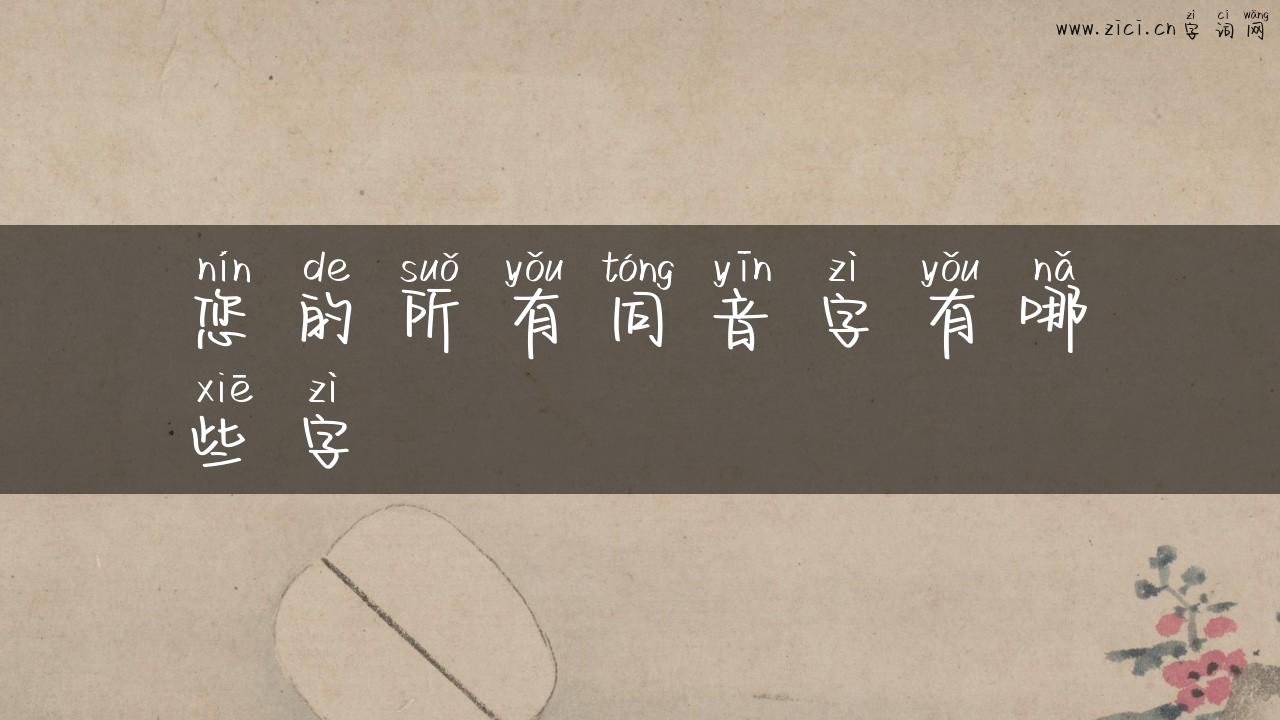 zì cí wǎng
www.zici.cn 字词网
nín de suǒ yǒu tóng yīn zì yǒu nǎ
您的所有同音字有哪
xiē zì
些字